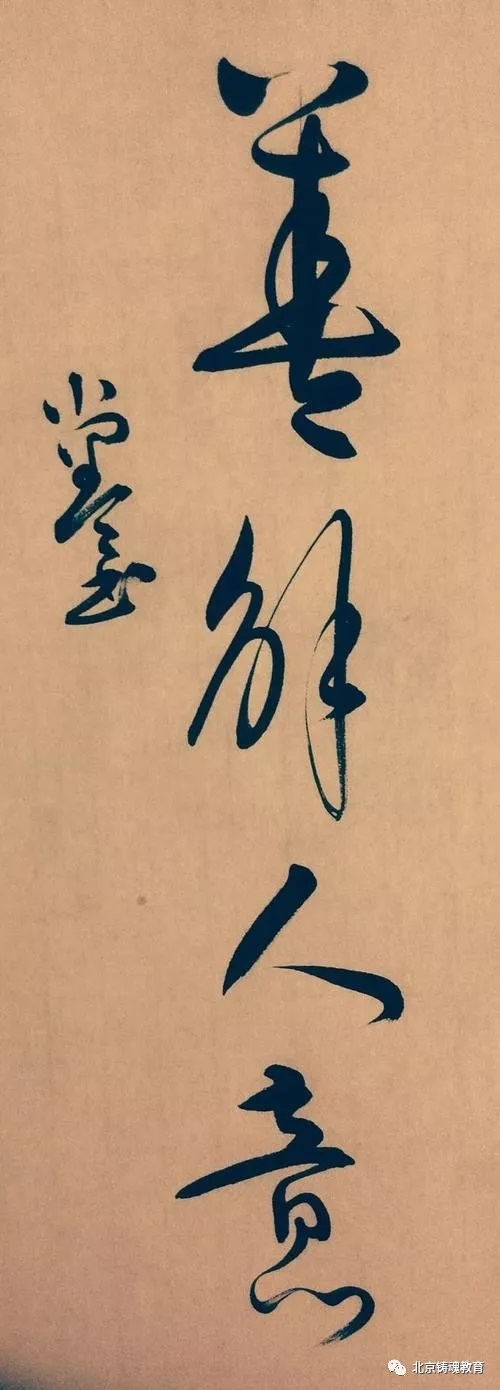 善解人意
北京铸魂教育